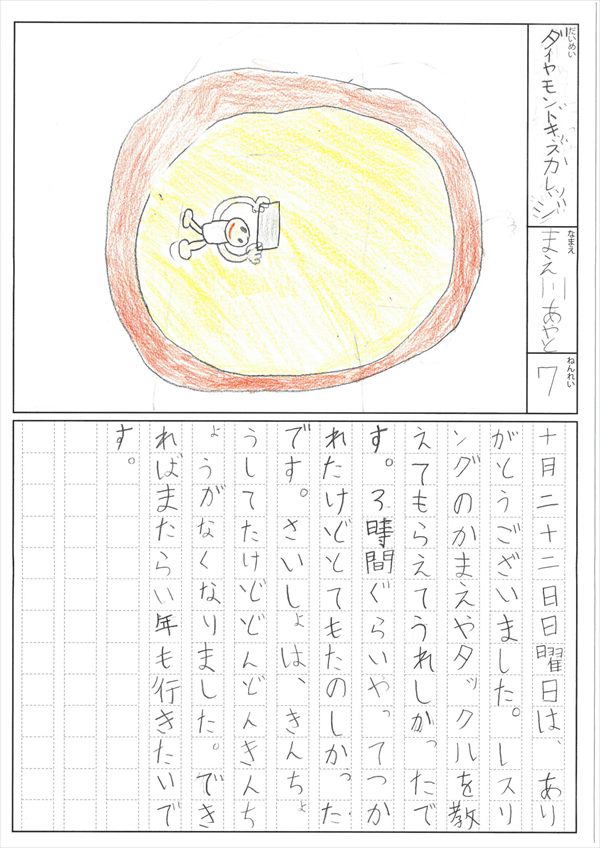 だいめい
ダイヤモンドキッズカレッジ
なまえ
まえ川あやと
ねんれい
7
十月二十二日日曜日は、あり
がとうございました。レスリ
ングのかまえやタックルを教
えてもらえてうれしかったで
す。3時間ぐらいやってつか
れたけどとてもたのしかった
です。さいしょは、きんちょ
うしてたけどどんどんきんち
ょうがなくなりました。でき
ればまたらい年も行きたいで
す。